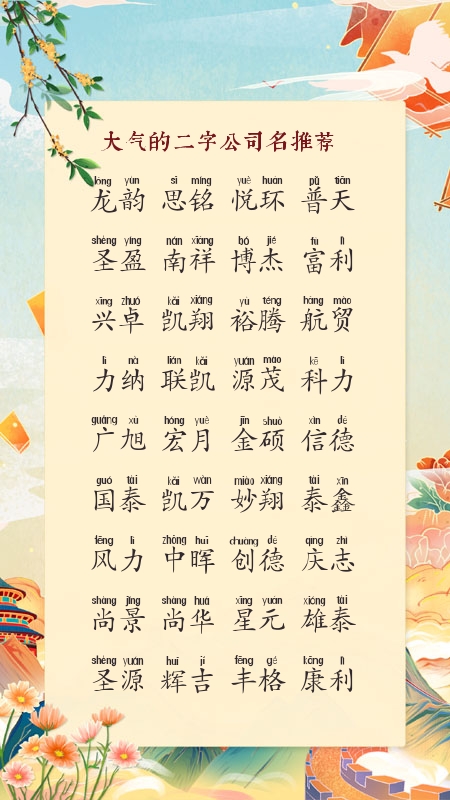 大气的二字公司名推荐
lóng yùn sī míng yuè huán pǔ tiān
龙韵 思铭 悦环 普天
shèng yíng nán xiáng bó jié fù lì
圣盈 南祥 博杰 富利
xīng zhuó kǎi xiáng yù téng háng mào
兴卓 凯翔 裕腾 航贸
lì nà lián kǎi yuán mào kē lì
力纳 联凯 源茂 科力
guǎng xù hóng yuè jīn shuò xìn dé
广旭 宏月 金硕 信德
guó tài kǎi wàn miào xiáng tài xīn
国泰 凯万 妙翔 泰鑫
fēng lì zhōng huī chuàng dé qìng zhì
风力 中晖 创德 庆志
shàng jǐng shàng huá xīng yuán xióng tài
尚景 尚华 星元 雄泰
shèng yuán huī jí fēng gé kāng lì
圣源 辉吉 丰格 康利